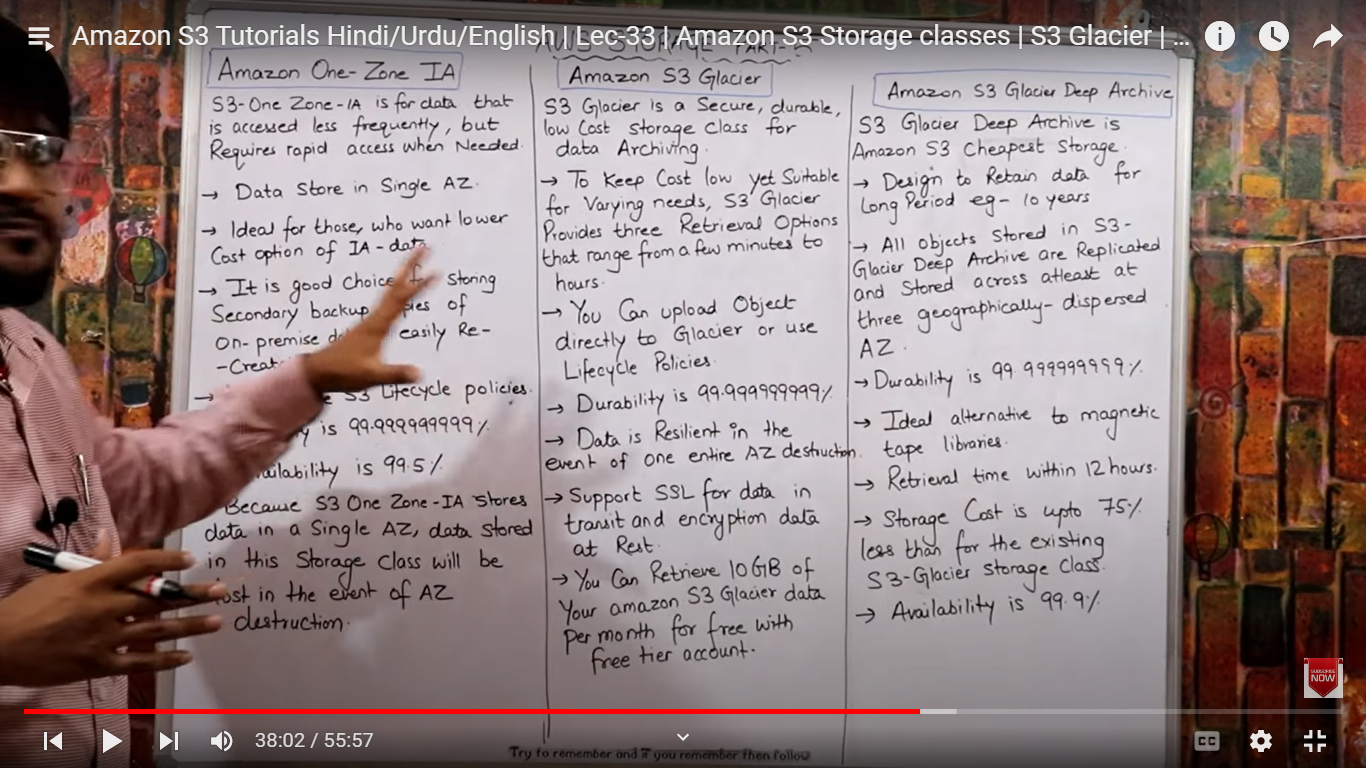 Amazon S3 Tutorials Hindi/Urdu/English | Lec-33 | Amazon S3 Storage classes | S3 Glacier | ...
Amazon One-Zone IA
S3-One Zone-IA is for data that
is accessed less frequently, but
Requires rapid access when Needed.
→ Data Store in Single AZ.
→ Ideal for those, who want lower
Cost option of IA-data
→ It is good Choice storing
Secondary backup of
on-premise easily Re-
-Creat
→ S3 Lifecycle policies.
is 99.999999999%
ailability is 99.5%
Because S3 One Zone-IA Stores
data in a Single AZ, data stored
in this Storage Class will be
lost in the event of AZ
destruction.
Amazon S3 Glacier
S3 Glacier is a Secure, durable,
low Cost storage class for
data Archiving.
→ To Keep Cost low yet Suitable
for Varying needs, S3 Glacier
Provides three Retrieval Options
that range from a few minutes to
hours.
→ You Can upload Object
directly to Glacier or use
Lifecycle Policies.
→ Durability is 99.999999999%
→ Data is Resilient in the
event of one entire AZ destruction.
→ Support SSL for data in
transit and encryption data
at Rest.
→ You Can Retrieve 10GB of
Your amazon S3 Glacier data
Per month for free with
free tier account.
Amazon S3 Glacier Deep Archive
S3 Glacier Deep Archive is
Amazon S3 Cheapest Storage.
→ Design to Retain data for
long Period eg- 10 years
→ All objects Stored in S3-
Glacier Deep Archive are Replicated
and Stored across atleast at
three geographically-dispersed
AZ.
→ Durability is 99.999999999%
→ Ideal alternative to magnetic
tape libraries.
→ Retrieval time within 12 hours.
→ Storage Cost is upto 75%
less than for the existing
S3-Glacier storage class.
→ Availability is 99.9%
Try to remember and if you remember then follow
SUBSCRIBE
NOW
38:02 / 55:57
CC